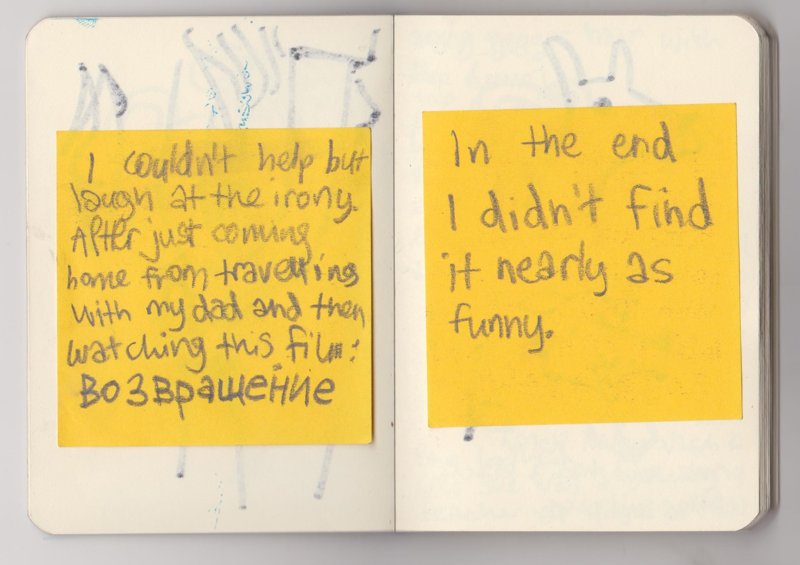 I couldn't help but
laugh at the irony.
After just coming
home from travelling
with my dad and then
watching this film:
возвращение
In the end
I didn't find
it nearly as
funny.